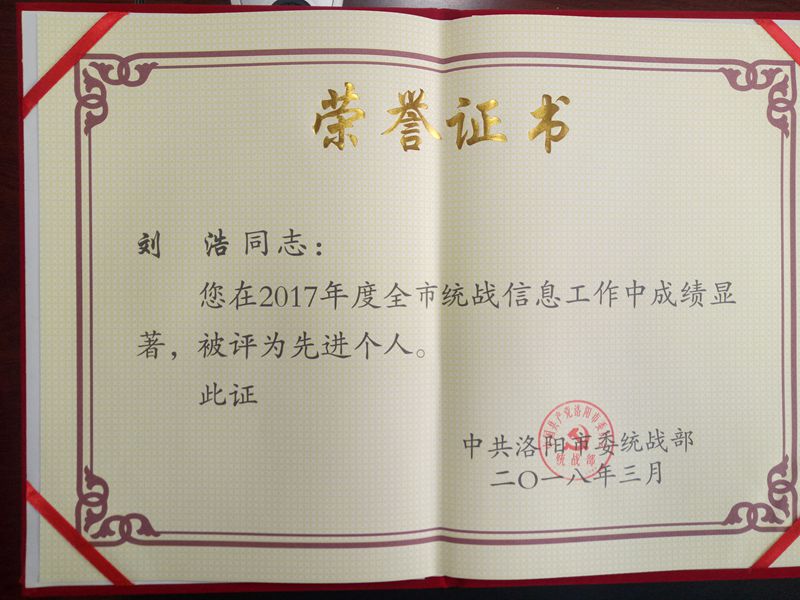 荣誉证书
刘 浩同志：
您在2017年度全市统战信息工作中成绩显
著，被评为先进个人。
此证
中共洛阳市委统战部
二〇一八年三月
中国共产党洛阳市委员会
统战部